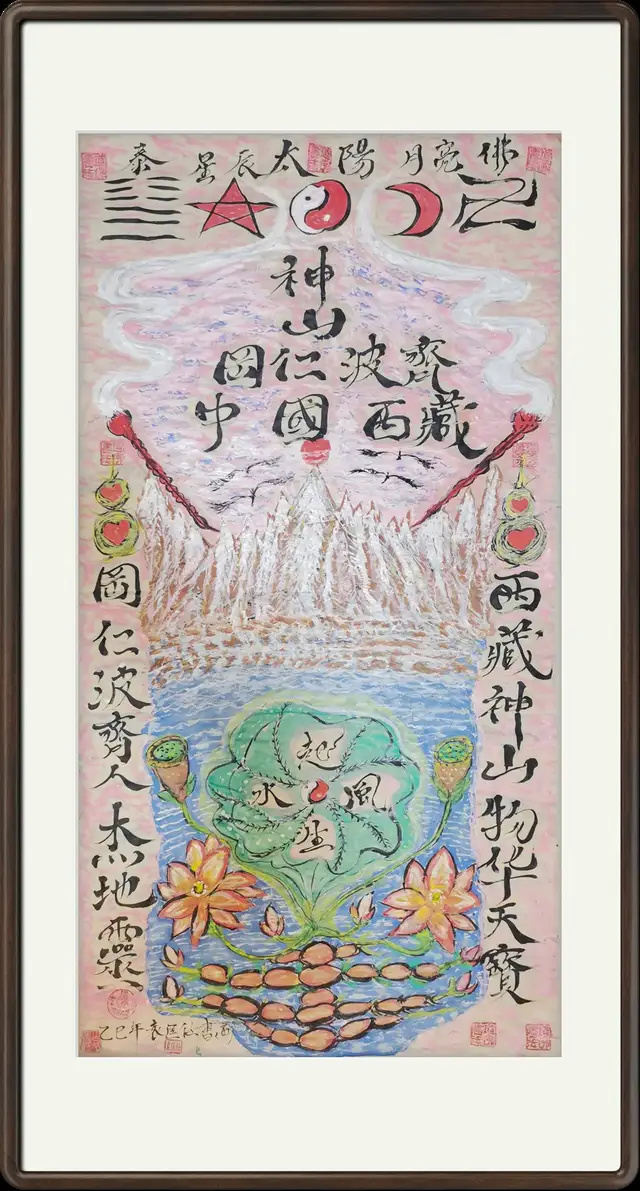 泰 星辰 太陽 月亮 佛
神
山
岡仁波齊
中國西藏
西藏神山物华天寶
岡仁波齊人杰地靈
起
水 風
生
乙巳年袁匡